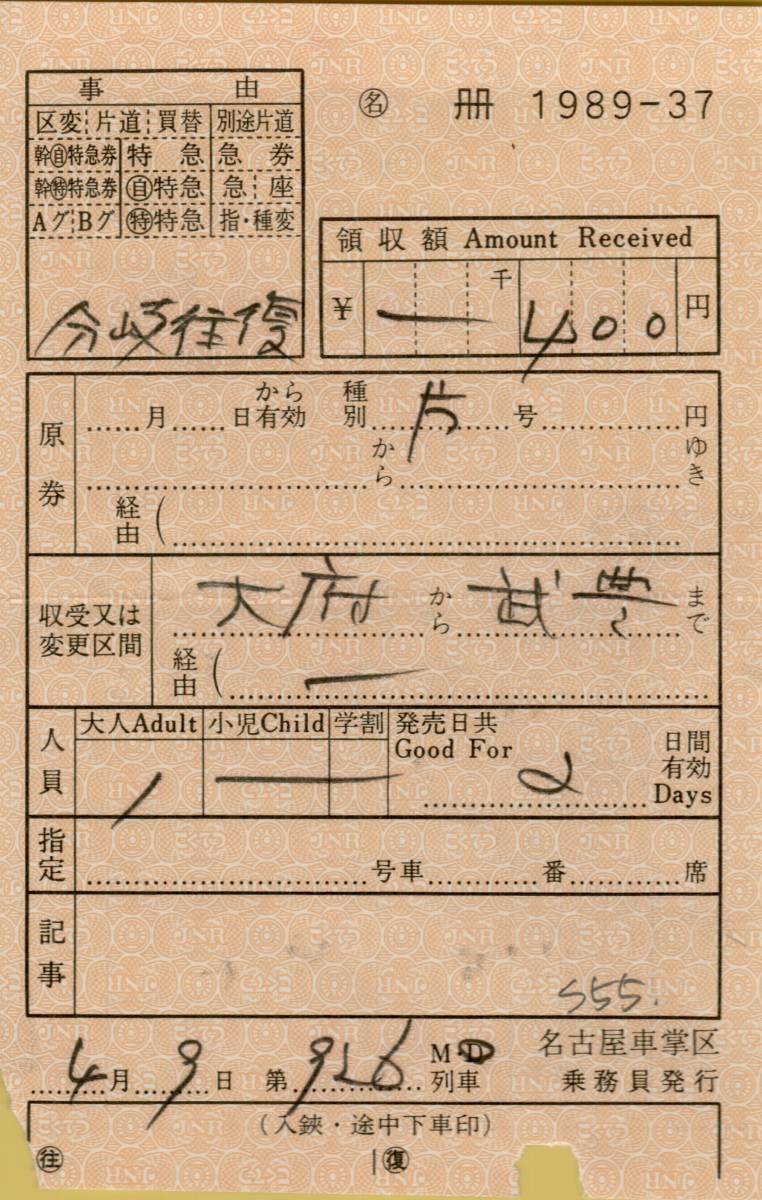 ㊔ 冊 1989-37
事由
区変 片道 買替 別途片道
幹㊐特急券 特急 急券
幹㊕特急券 ㊐特急 急 座
Aグ Bグ ㊕特急 指・種変
分岐往復
領収額 Amount Received
¥ 一 千 400 円
原券
月 日から有効 種別 片 号 円
から ゆき
経由(
収受又は変更区間
大府 から 武豊 まで
経由( 一
人員
大人Adult 小児Child 学割 発売日共 Good For 日間有効 Days
1 一 2
指定
号車 番 席
記事
S55.
4月9日 第926 M・D列車
名古屋車掌区
乗務員発行
(入鋏・途中下車印)
往 復